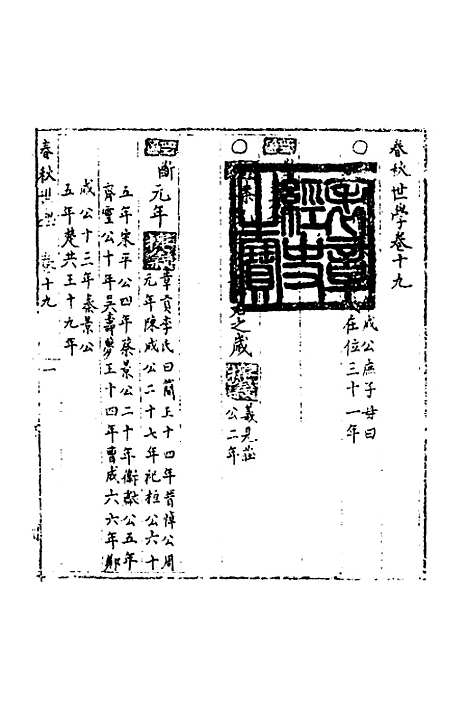 春秋世學卷十九
成公庶子母曰
在位三十一年
之歲
義見莊
公二年
斷元年
章貢李氏曰簡王十四年晉悼公周
元年陳成公二十七年杞桓公六十
五年宋平公四年蔡景公二十年衛獻公五年
齊靈公十年吳壽夢王十四年曹成六六年鄭
成公十三年秦景公
五年楚共王十九年
春秋世學 卷十九 一